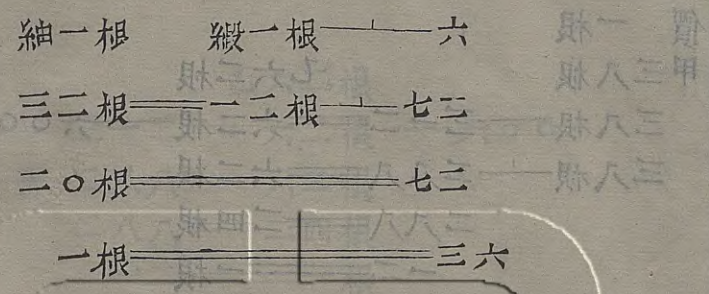 紬一根 緞一根—⊥—六
三二根══一二根—⊥—七二
二〇根══七二
一根══三六